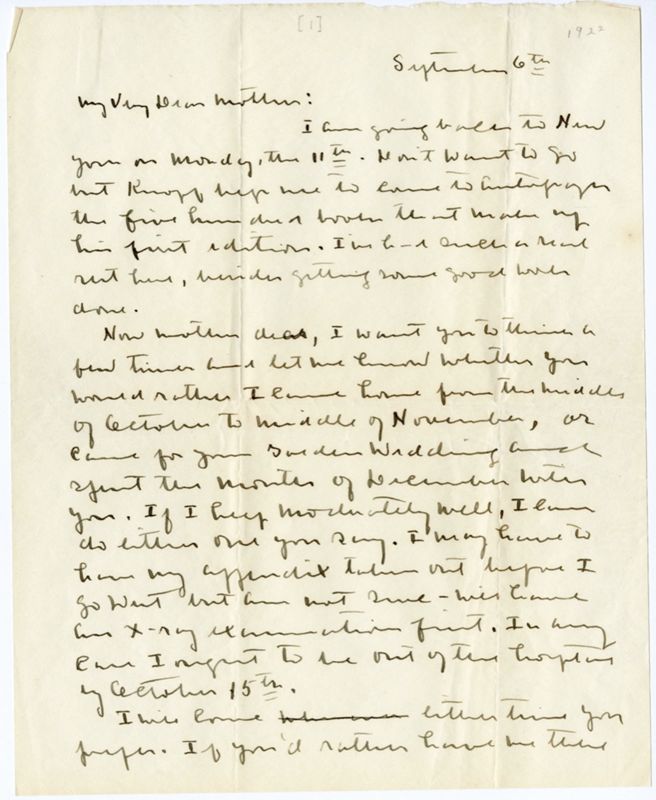 [1]
1922
September 6th
My Very Dear Mother:
I am going back to New
York on Monday, the 11th. Don't want to go
but Knopf begs me to come to autograph
the five hundred books that make up
his first edition. I've had such a real
rest here, besides getting some good work
done.
Now mother dear, I want you to think a
few times and let me know whether you
would rather I came home from the middle
of October to middle of November, or
came for your Golden Wedding and
spent the month of December with
you. If I keep moderately well, I can
do either one you say. I may have to
have my appendix taken out before I
go West but am not sure - will have
an X-ray examination first. In any
case I ought to be out of the hospital
by October 15th.
I will come either time you
prefer. If you'd rather have me there